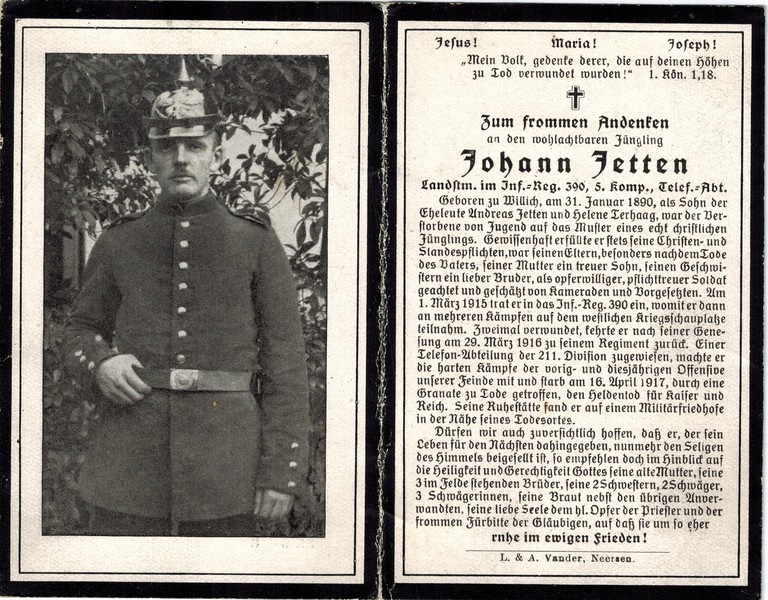 Jesus! Maria! Joseph!
„Mein Volk, gedenke derer, die auf deinen Höhen
zu Tod verwundet wurden!“ 1. Kön. 1,18.
Zum frommen Andenken
an den wohlachtbaren Jüngling
Johann Jetten
Landstm. im Inf.=Reg. 390, 5. Komp., Telef.=Abt.
Geboren zu Willich, am 31. Januar 1890, als Sohn der
Eheleute Andreas Jetten und Helene Terhaag, war der Ver=
storbene von Jugend auf das Muster eines echt christlichen
Jünglings. Gewissenhaft erfüllte er stets seine Christen= und
Standespflichten, war seinen Eltern, besonders nach dem Tode
des Vaters, seiner Mutter ein treuer Sohn, seinen Geschwi=
stern ein lieber Bruder, als opferwilliger, pflichttreuer Soldat
geachtet und geschätzt von Kameraden und Vorgesetzten. Am
1. März 1915 trat er in das Inf.=Reg. 390 ein, womit er dann
an mehreren Kämpfen auf dem westlichen Kriegsschauplatze
teilnahm. Zweimal verwundet, kehrte er nach seiner Gene=
sung am 29. März 1916 zu seinem Regiment zurück. Einer
Telefon=Abteilung der 211. Division zugewiesen, machte er
die harten Kämpfe der vorig= und diesjährigen Offensive
unserer Feinde mit und starb am 16. April 1917, durch eine
Granate zu Tode getroffen, den Heldentod für Kaiser und
Reich. Seine Ruhestätte fand er auf einem Militärfriedhofe
in der Nähe seines Todesortes.
Dürfen wir auch zuversichtlich hoffen, daß er, der sein
Leben für den Nächsten dahingegeben, nunmehr den Seligen
des Himmels beigesellt ist, so empfehlen doch im Hinblick auf
die Heiligkeit und Gerechtigkeit Gottes seine alte Mutter, seine
3 im Felde stehenden Brüder, seine 2 Schwestern, 2 Schwäger,
3 Schwägerinnen, seine Braut nebst den übrigen Anver=
wandten, seine liebe Seele dem hl. Opfer der Priester und der
frommen Fürbitte der Gläubigen, auf daß sie um so eher
rnhe im ewigen Frieden!
L. & A. Vander, Neersen.